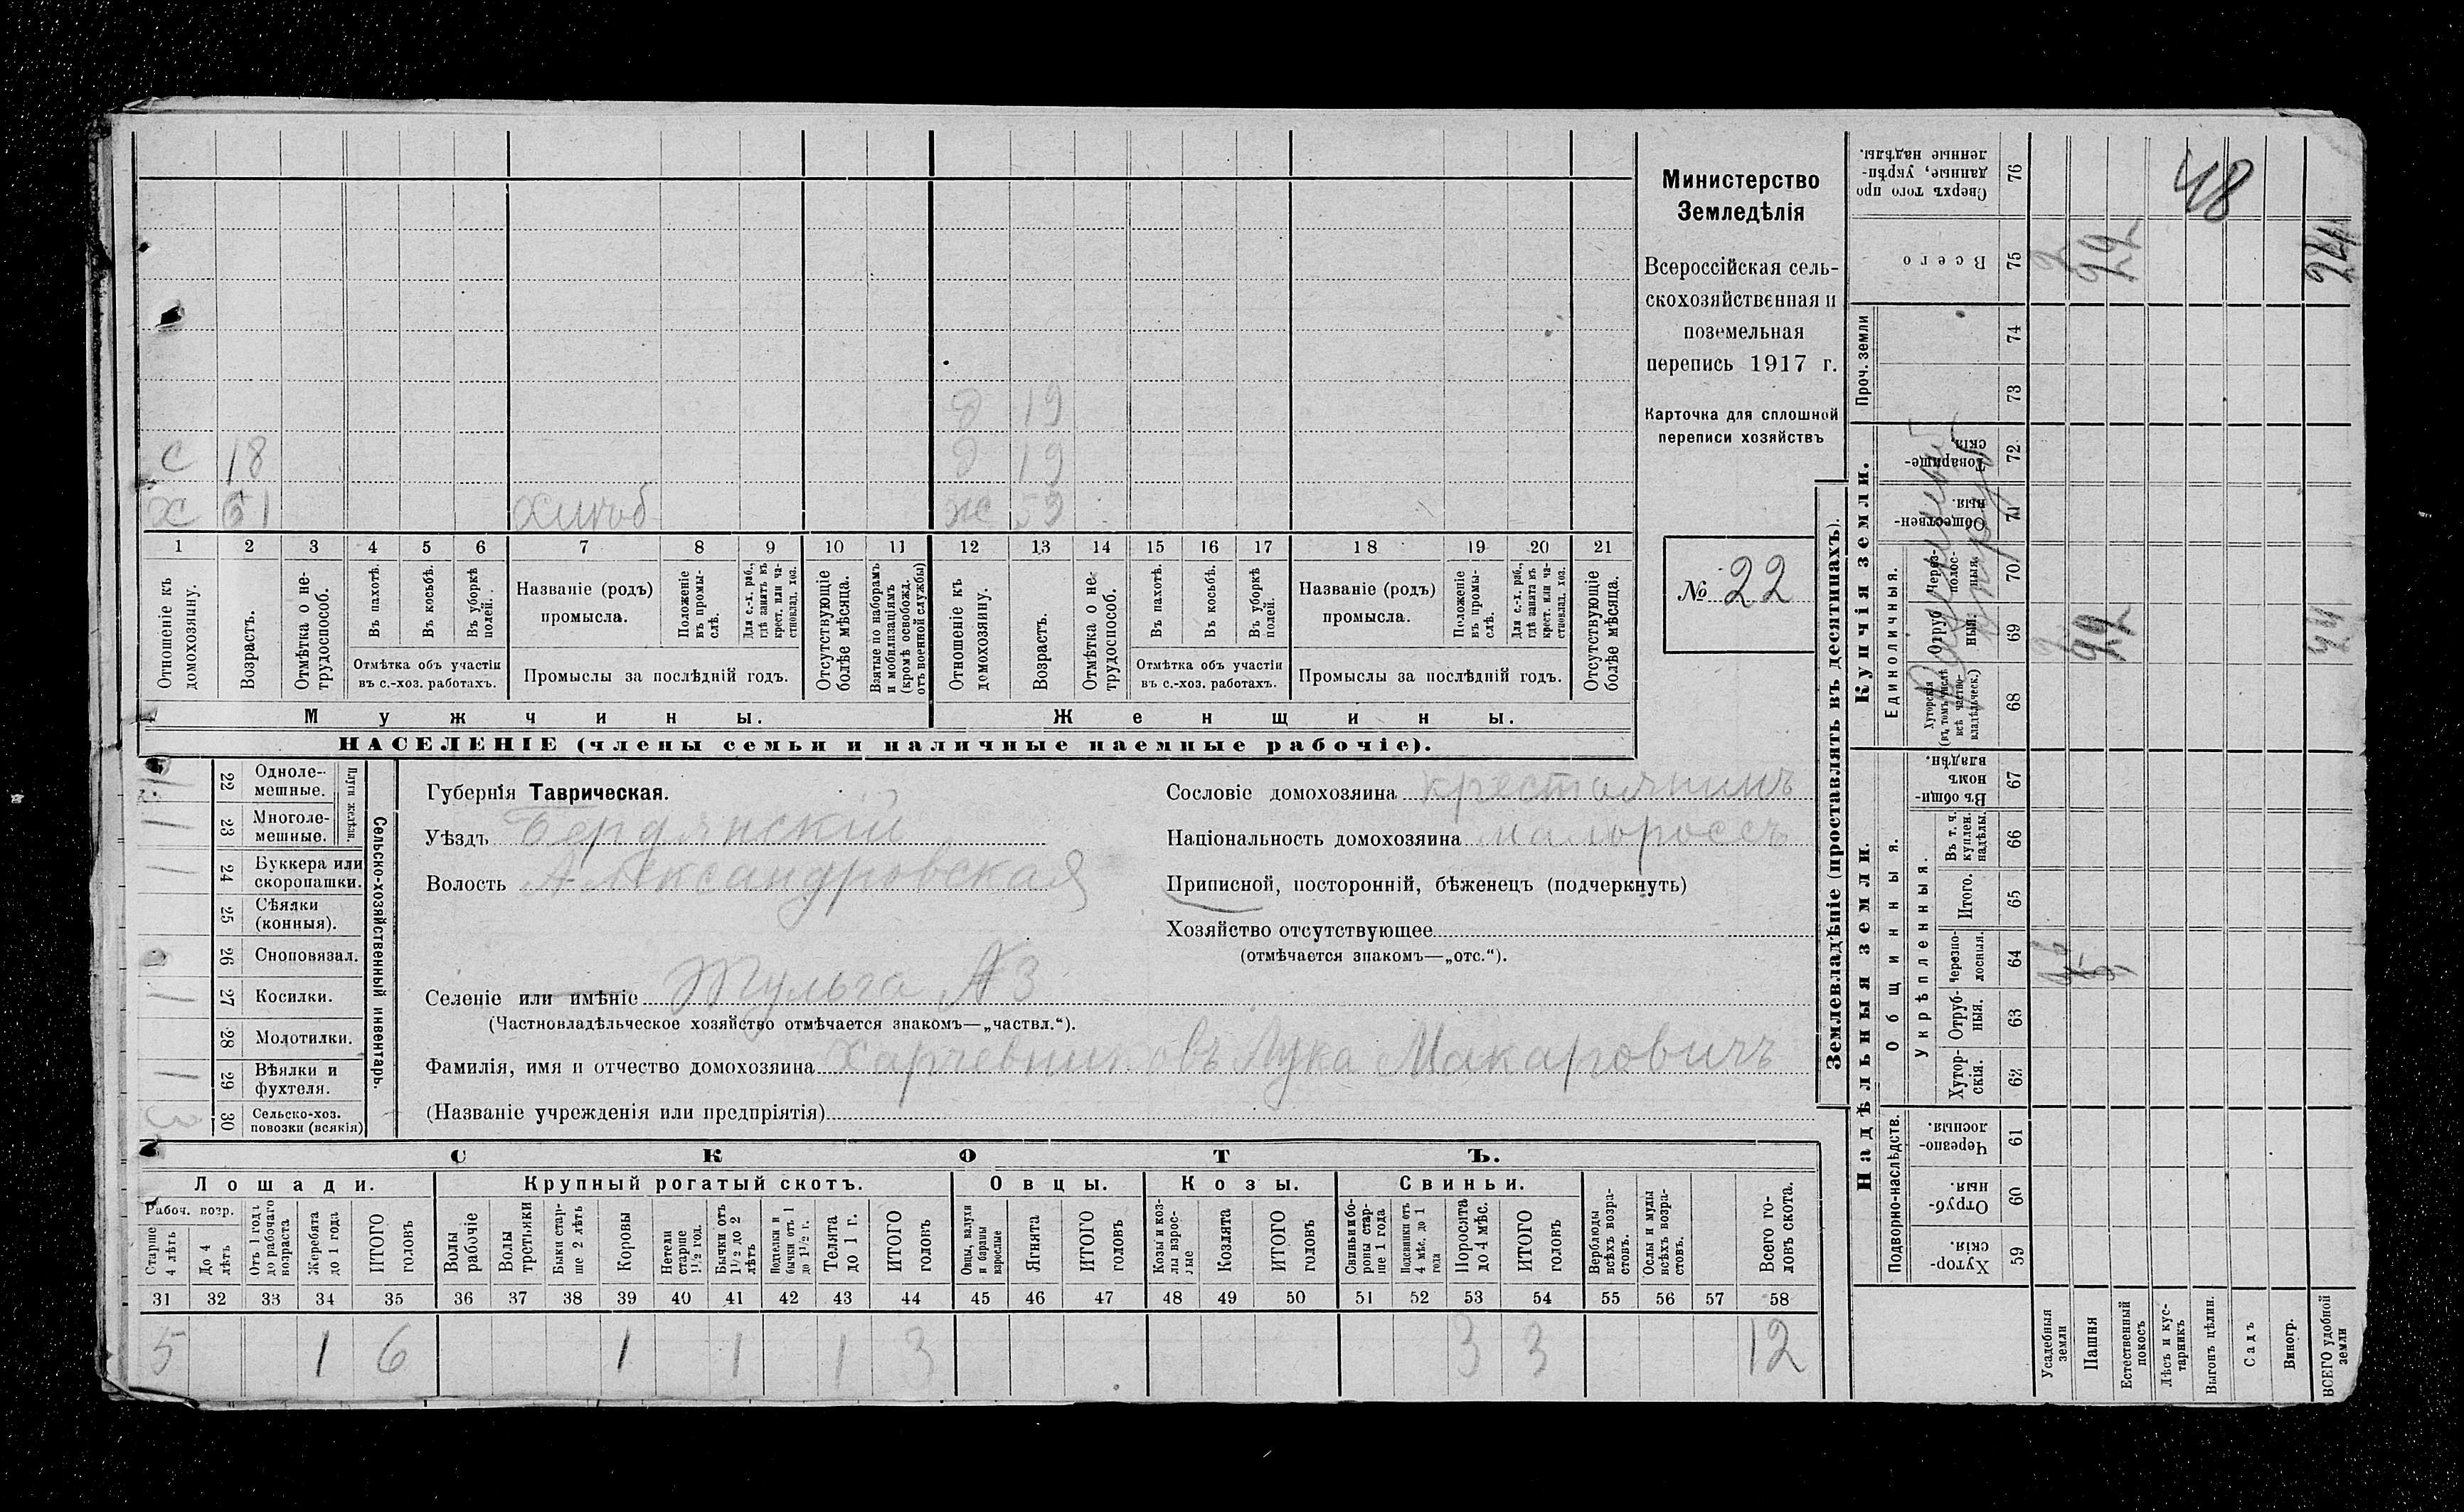 Министерство
Земледѣлія
Всероссійская сель-
скохозяйственная и
поземельная
перепись 1917 г.
Карточка для сплошной
переписи хозяйствъ
№ 22
48
д 19
с 18 д 19
х 51 ж 59
1 2 3 4 5 6 7 8 9 10 11 12 13 14 15 16 17 18 19 20 21
Отношеніе къ домохозяину.
Возрастъ.
Отмѣтка о не-
трудоспособ.
Въ пахотѣ.
Въ косьбѣ.
Въ уборкѣ полей.
Отмѣтка объ участіи
въ с.-хоз. работахъ.
Названіе (родъ)
промысла.
Положеніе въ промы-
слѣ.
Для с.-х. раб., гдѣ занятъ въ крест. или ча-
стновлад. хоз.
Промыслы за послѣдній годъ.
Отсутствующіе болѣе мѣсяца.
Взятые по наборамъ и мобилизаціямъ (кромѣ освобожд. отъ военной службы)
Отношеніе къ домохозяину.
Возрастъ.
Отмѣтка о не-
трудоспособ.
Въ пахотѣ.
Въ косьбѣ.
Въ уборкѣ полей.
Отмѣтка объ участіи
въ с.-хоз. работахъ.
Названіе (родъ)
промысла.
Положеніе въ промы-
слѣ.
Для с.-х. раб., гдѣ занята въ крест. или ча-
стновлад. хоз.
Промыслы за послѣдній годъ.
Отсутствующіе болѣе мѣсяца.
Мужчины.
Женщины.
НАСЕЛЕНІЕ (члены семьи и наличные наемные рабочіе).
Сельско-хозяйственный инвентарь.
Плуги желѣзн.
22 Одноле-
мешные.
1 23 Многоле-
мешные.
1 24 Буккера или
скоропашки.
25 Сѣялки
(конныя).
26 Сноповязал.
1 27 Косилки.
28 Молотилки.
1 29 Вѣялки и
фухтеля.
3 30 Сельско-хоз.
повозки (всякія)
Губернія Таврическая.
Уѣздъ Бердянскій
Волость Александровская
Селеніе или имѣніе
(Частновладѣльческое хозяйство отмѣчается знакомъ—„частвл.“).
Фамилія, имя и отчество домохозяина Харчевниковъ Лука Макаровичъ
(Названіе учрежденія или предпріятія)
Сословіе домохозяина крестьянинъ
Національность домохозяина малороссъ
Приписной, посторонній, бѣженецъ (подчеркнуть)
Хозяйство отсутствующее
(отмѣчается знакомъ—„отс.“).
СКОТЪ.
Лошади.
Крупный рогатый скотъ.
Овцы.
Козы.
Свиньи.
Рабоч. возр.
Старше 4 лѣтъ
До 4 лѣтъ
Отъ 1 года до рабочаго возраста
Жеребята до 1 года
ИТОГО головъ
Волы рабочіе
Волы третьяки
Быки стар-
ше 2 лѣтъ
Коровы
Нетели старше 1½ год.
Бычки отъ 1½ до 2 лѣтъ
Подтелки и бычки отъ 1 до 1½ г.
Телята до 1 г.
ИТОГО головъ
Овцы, валухи и бараны взрослые
Ягнята
ИТОГО головъ
Козы и коз-
лы взрос-
лые
Козлята
ИТОГО головъ
Свиньи и бо-
ровы стар-
ше 1 года
Подсвинки отъ 4 мѣс. до 1 года
Поросята до 4 мѣс.
ИТОГО головъ
Верблюды всѣхъ возра-
стовъ.
Ослы и мулы всѣхъ возра-
стовъ.
Всего го-
ловъ скота.
31 32 33 34 35 36 37 38 39 40 41 42 43 44 45 46 47 48 49 50 51 52 53 54 55 56 57 58
5 1 6 1 1 1 3 3 3 12
Землевладѣніе (проставлять въ десятинахъ).
Сверхъ того про
данные, укрѣп-
ленные надѣлы.
76
Всего
75
Проч. земли
74
73
Купчія земли.
Товарище-
скія.
72
Обществен-
ныя.
71
Единоличныя.
Через-
полос-
ныя.
70
Отруб
ныя.
69
Хуторскія
(въ томъ числѣ
всѣ частно-
владѣльческ.)
68
Надѣльныя земли.
Въ общин-
номъ
владѣн.
67
Общинныя.
Укрѣпленныя.
Въ т. ч.
куплен.
надѣлы.
66
Итого.
65
Черезпо-
лосныя.
64
Отруб-
ныя.
63
Хутор-
скія.
62
Подворно-наслѣдств.
Черезпо-
лосныя.
61
Отруб-
ныя.
60
Хутор-
скія.
59
Усадебныя
земли
Пашня
Естественный
покосъ
Лѣсъ и кус-
тарникъ
Выгонъ цѣлин.
Садъ
Виногр.
ВСЕГО удобной
земли